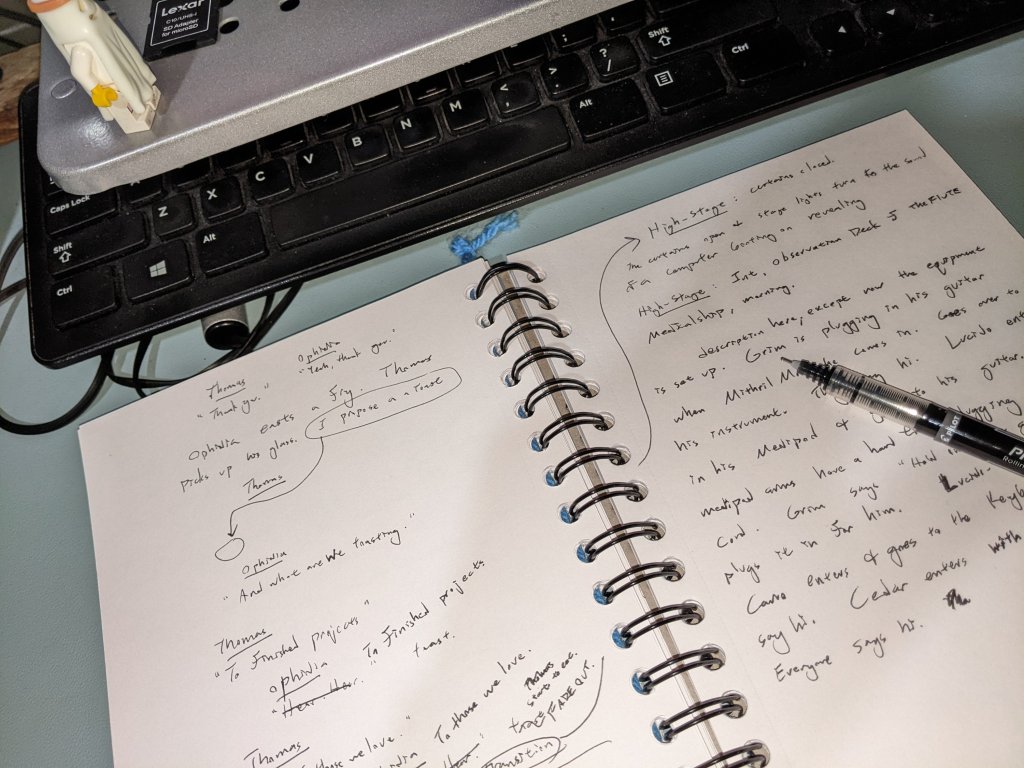 Lexar
C10/UHS-I
SD Adapter
for microSD
Shift
Ctrl
Alt
Caps Lock
Z X C V B N M < , > . ? /
Shift
Alt
Ctrl
Ophidia
"Yeah, thank you."
Thomas
"Thank you."
Ophidia eats a fry. Thomas
picks up his glass. I propose a a toast
Thomas
Ophidia
"And what are we toasting."
Thomas
"To Finished projects"
Ophidia
"Hear Hear" To Finished projects
toast.
Thomas
those we love." To those we love.
Thomas
start to eat.
toast FADE OUT.
Transition
High-Stage: curtains closed.
The curtains open & stage lights turn to the sound
of a computer booting on revealing
High-Stage: Int, Observation Deck of the FLUTE
Medicalship, morning.
description here, except now the equipment
is set up. Grim is plugging in his guitar
when Mithril comes in. Goes over to
his instrument. hi. Lucido
in his Medipod & to his guitar.
medipod arms have a hard plugging
Cord. Grim says "Hold Lucido
plugs it in for him.
Caro enters & goes to the
say hi. Cedar enters with
Everyone says hi.